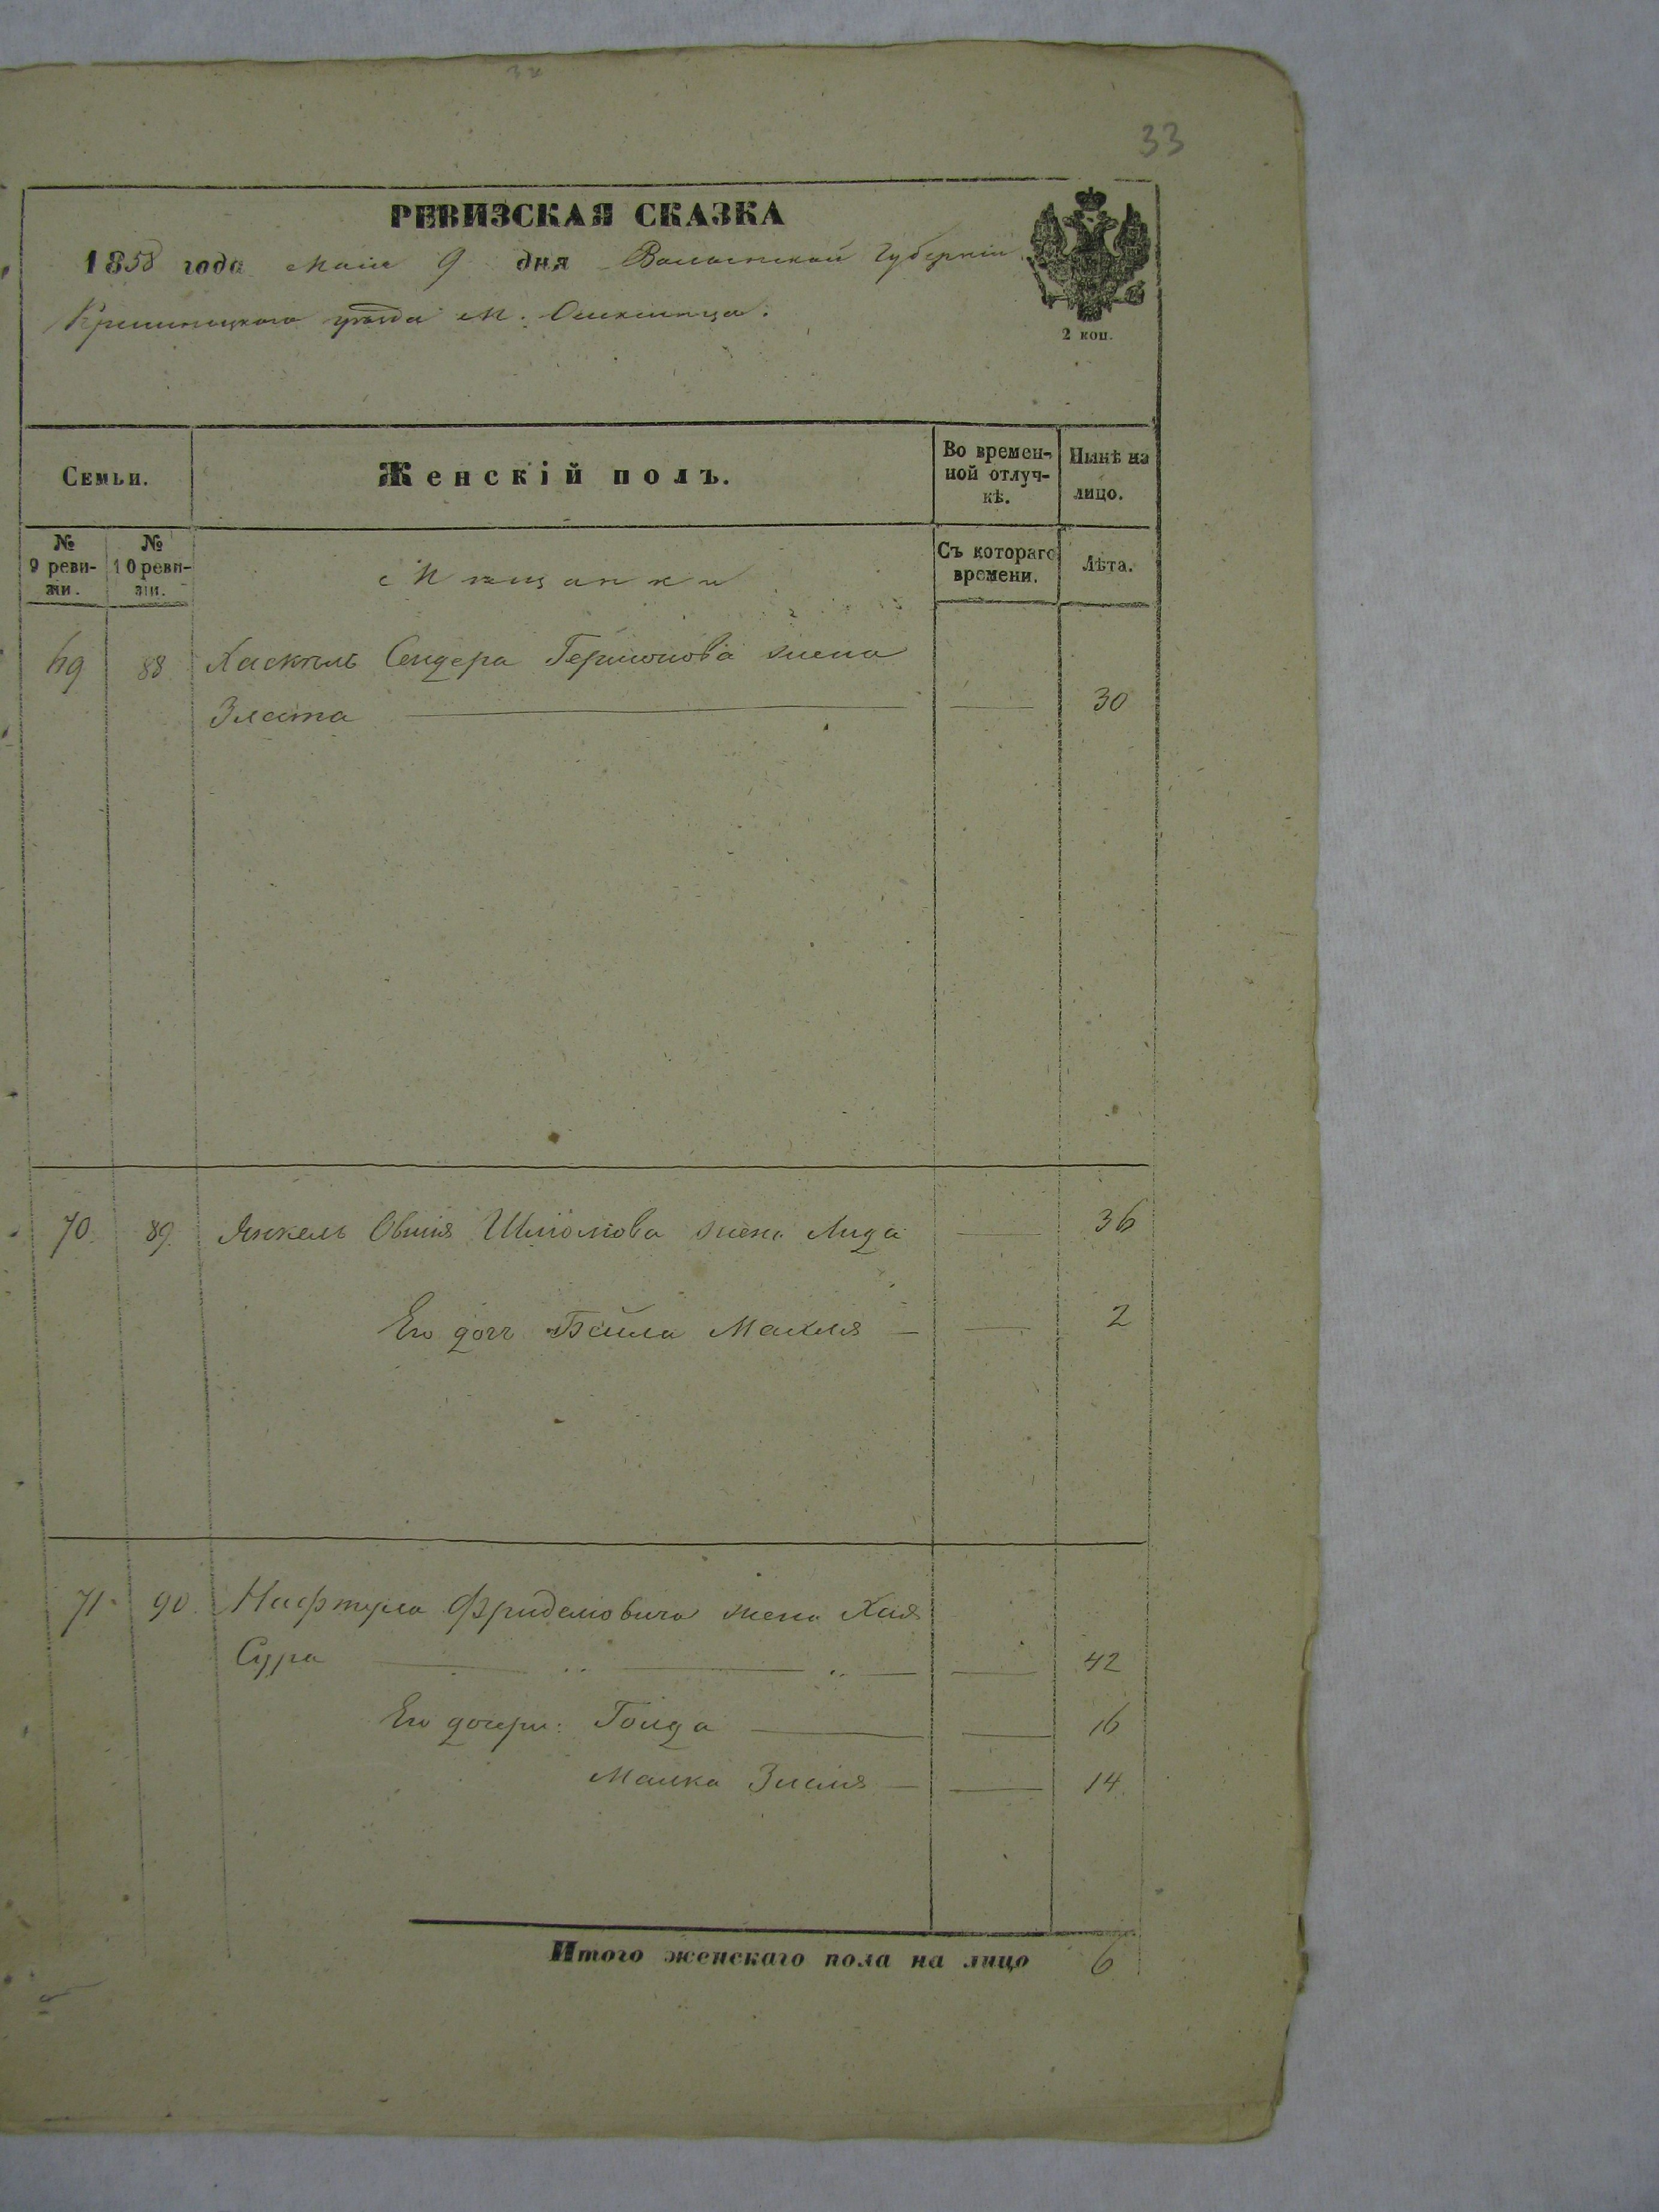 33
РЕВИЗСКАЯ СКАЗКА
1858 года Маія 9 дня Волынской Губерніи
Кременецкаго уѣзда м. Олексинца.
2 коп.
Семьи.
Женскій полъ.
Во времен-
ной отлуч-
кѣ.
Нынѣ на
лицо.
№
9 реви-
зіи.
№
10 реви-
зіи.
Мѣщанки
Съ котораго
времени.
Лѣта.
69 88 Хаскѣль Сендера Гершонова жена
Злата — — 30
70. 89. Янкель Овшія Шліомова жена Лида — 36
Его дочь Бейла Махля — — 2
71. 90. Нафтула Фриделовича жена Хая
Сура — „ — „ — — 42
Его дочери: Голда — — 16
Малка Зисля — — 14
Итого женскаго пола на лицо 6